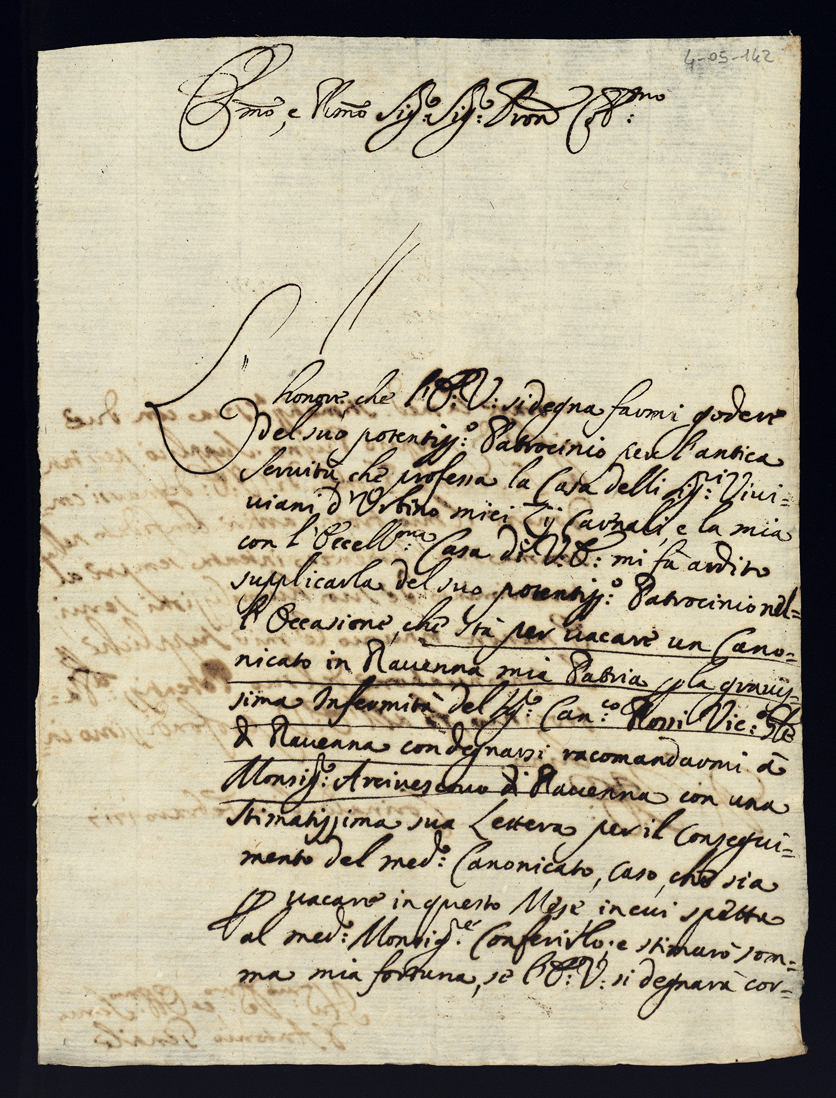 4-05-142
Em̃o, e Rm̃o Sig:e Sig:e Pron Col:mo
L'honore che l'E:V: si degna farmi godere
del suo potentiss:o Patrocinio per l'antica
Servitù, che professa la Casa delli Sig:ri Vivi=
viani d'Urbino miei Zij Carnali, e la mia
con l'Eccell:ma Casa di V:E: mi fà ardito
supplicarla del suo potentiss:o Patrocinio nel=
l'Occasione, che stà per vacare un Cano=
nicato in Ravenna mia Patria p la gravis=
sima Infermità del Sig:r Can:co Rossi Vic:o
di Ravenna con degnarsi racomandarmi à
Monsig:r Arcivescovo di Ravenna con una
stimatissima sua Lettera per il consegui=
mento del med:o Canonicato, caso, che sia
p vacare in questo Mese, in cui spetta
al med:o Monsig:re Conferirlo; e stimarò som=
ma mia fortuna, se l'E:V: si degnarà cor=